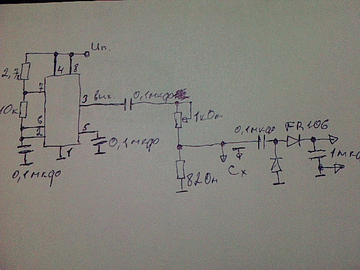 Uп.
2,7
4
8
7
3
вых
0,1мкф
10к
1кОм
6
2
5
0,1мкф
1
0,1мкф
0,1мкф
FR106
Cx
1мк
820н